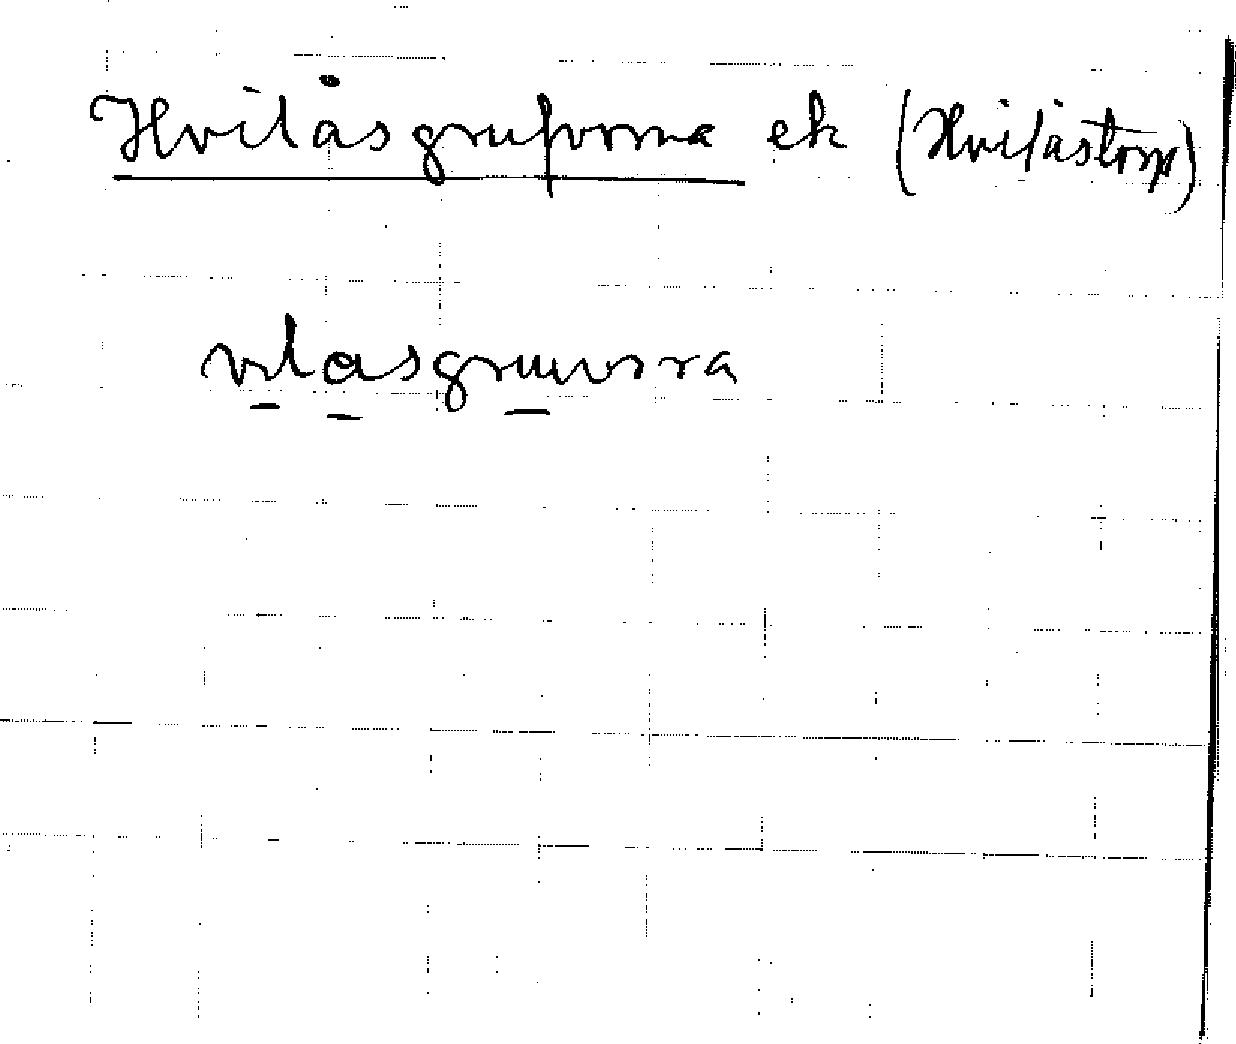 Hvilåsgrufvorna ek (Hvilåstorp)
vilasgruvora